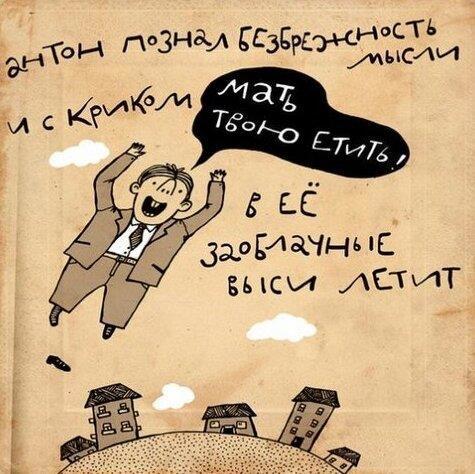 антон познал безбрежность
мысли
и с криком
мать
твою етить!
в её
заоблачные
выси летит